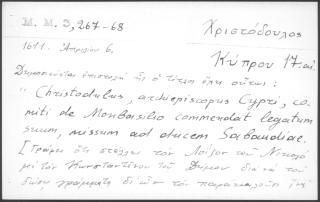 M. M. 3, 267-68
Χριστόδουλος
Κύπρου 17. αἰ.
1611. Ἀπριλίου 6.
Δημοσιεύεται ἐπιστολή ἧς ὁ τίτλος ἔχει οὕτως:
"Christodulus, archiepiscopus Cypri, co-
miti de Monbasilio commendat legatum
suum, missum ad ducem Sabaudiae.
[Γράφει ὅτι στέλλει τὸν Λοΐζον τοῦ Νικολῆ
μὲ τὸν Κωνσταντῖνον τοῦ διὰ νὰ τοῦ
δώσῃ γράμματα δι' ὧν τὸν παρακαλοῦσι